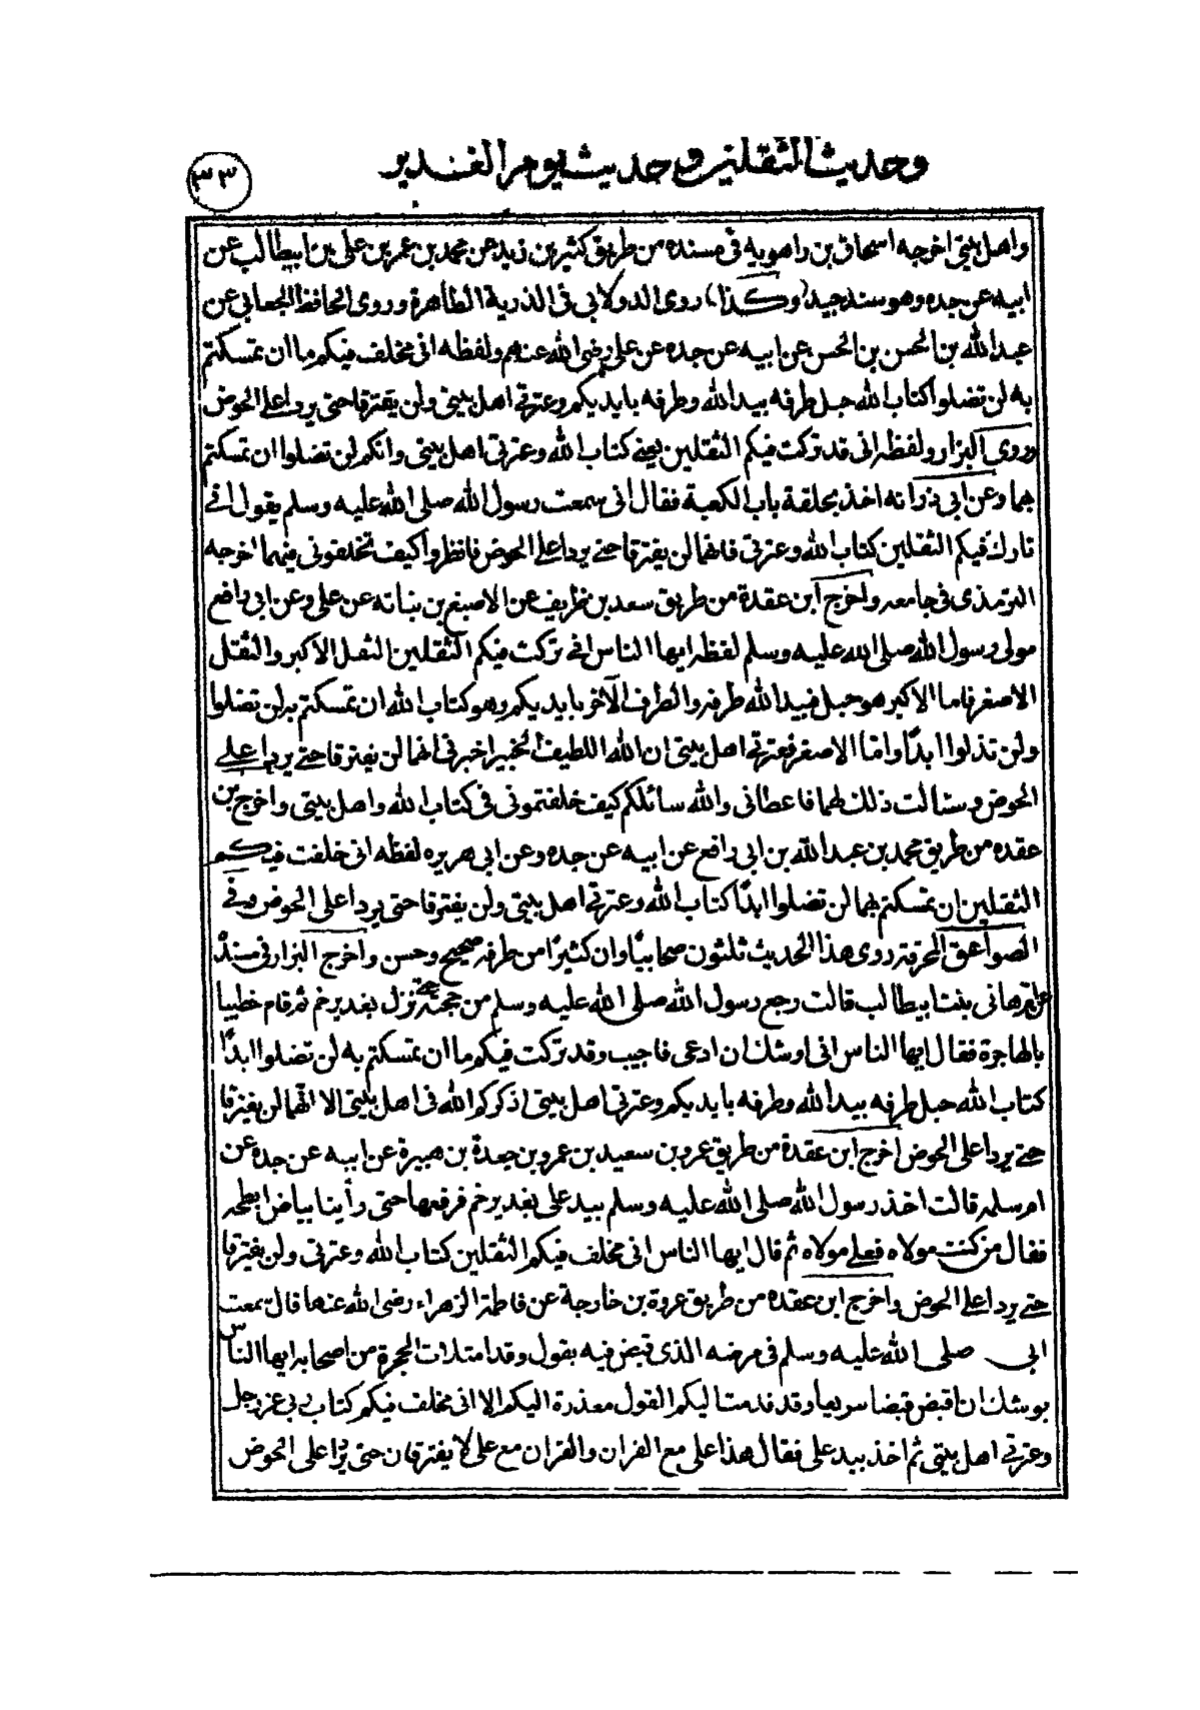 وحديث الثقلين وحديث يوم الغدير
٣٣
واهل بيتي اخرجه اسحاق بن راهويه في مسنده من طريق كثير بن زيد عن محمد بن عمر بن علي بن ابيطالب عن
ابيه عن جده وهو سند جيد (وكذا) روى الدولابي في الذرية الطاهرة وروى الحافظ الجعابي عن
عبد الله بن الحسن بن الحسن عن ابيه عن جده عن علي رضى الله عنهم ولفظه انى مخلف فيكم ما ان تمسكتم
به لن تضلوا كتاب الله حبل طرفه بيد الله وطرفه بايديكم وعترتي اهل بيتي ولن يفترقا حتى يردا على الحوض
وروى البزار ولفظه انى قد تركت فيكم الثقلين يعنے كتاب الله وعترتي اهل بيتي وانكم لن تضلوا ان تمسكتم
بهما وعن ابي ذر انه اخذ بحلقة باب الكعبة فقال انى سمعت رسول الله صلى الله عليه وسلم يقول انے
تارك فيكم الثقلين كتاب الله وعترتي فانهما لن يفترقا حتے يردا على الحوض فانظروا كيف تخلفوني فيهما اخرجه
الترمذى في جامعه واخرج ابن عقدة من طريق سعد بن ظريف عن الاصبغ بن بناته عن علي وعن ابي رافع
مولى رسول الله صلى الله عليه وسلم لفظه ايها الناس انے تركت فيكم الثقلين الثقل الاكبر والثقل
الاصغر فاما الاكبر هو حبل فبيد الله طرفه والطرف الآخر بايديكم وهو كتاب الله ان تمسكتم به لن تضلوا
ولن تذلوا ابدًا واما الاصغر فعترتي اهل بيتي ان الله اللطيف الخبير اخبرني انهما لن يفترقا حتے يردا علے
الحوض وسئالت ذلك لهما فاعطاني والله سائلكم كيف خلفتموني في كتاب الله واهل بيتي واخرج بن
عقده من طريق محمد بن عبد الله بن ابي رافع عن ابيه عن جده وعن ابي هريره لفظه انى خلفت فيكم
الثقلين ان تمسكتم بهما لن تضلوا ابدًا كتاب الله وعترتي اهل بيتي ولن يفترقا حتى يردا على الحوض وفے
الصواعق المحرقة روى هذا الحديث ثلثون صحابيًا وان كثيرًا من طرقه صحيح وحسن واخرج البزار في مسنده
عن ام هانى بنت ابيطالب قالت رجع رسول الله صلى الله عليه وسلم من حجته حتے نزل بغدير خم ثم قام خطيبا
بالهاجرة فقال ايها الناس انى اوشك ان ادعى فاجيب وقد تركت فيكم ما ان تمسكتم به لن تضلوا ابدًا
كتاب الله حبل طرفه بيد الله وطرفه بايديكم وعترتي اهل بيتي اذكركم الله في اهل بيتي الا انهما لن يفترقا
حتے يردا على الحوض اخرج ابن عقدة من طريق عرو بن سعيد بن عرو بن جعدة بن هبيرة عن ابيه عن جده عن
ام سلمه قالت اخذ رسول الله صلى الله عليه وسلم بيد على بغدير خم فرفعها حتى رأينا بياض ابطه
فقال من كنت مولاه فعلي مولاه ثم قال ايها الناس انى مخلف فيكم الثقلين كتاب الله وعترتي ولن يفترقا
حتے يردا علے الحوض واخرج ابن عقده من طريق عروة بن خارجة عن فاطمة الزهراء رضى الله عنها قالت سمعت
ابي صلى الله عليه وسلم في مرضه الذى قبض فيه يقول وقد امتلات الحجرة من اصحابه ايها الناس
يوشك ان اقبض قبضا سريعا وقد قدمت اليكم القول معذرة اليكم الا انى مخلف فيكم كتاب ربي عز وجل
وعترتي اهل بيتي ثم اخذ بيد على فقال هذا على مع القران والقران مع على لا يفترقان حتى يردا على الحوض